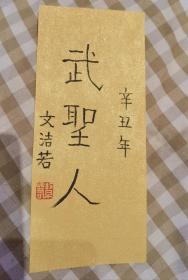 辛丑年
武聖人
文洁若